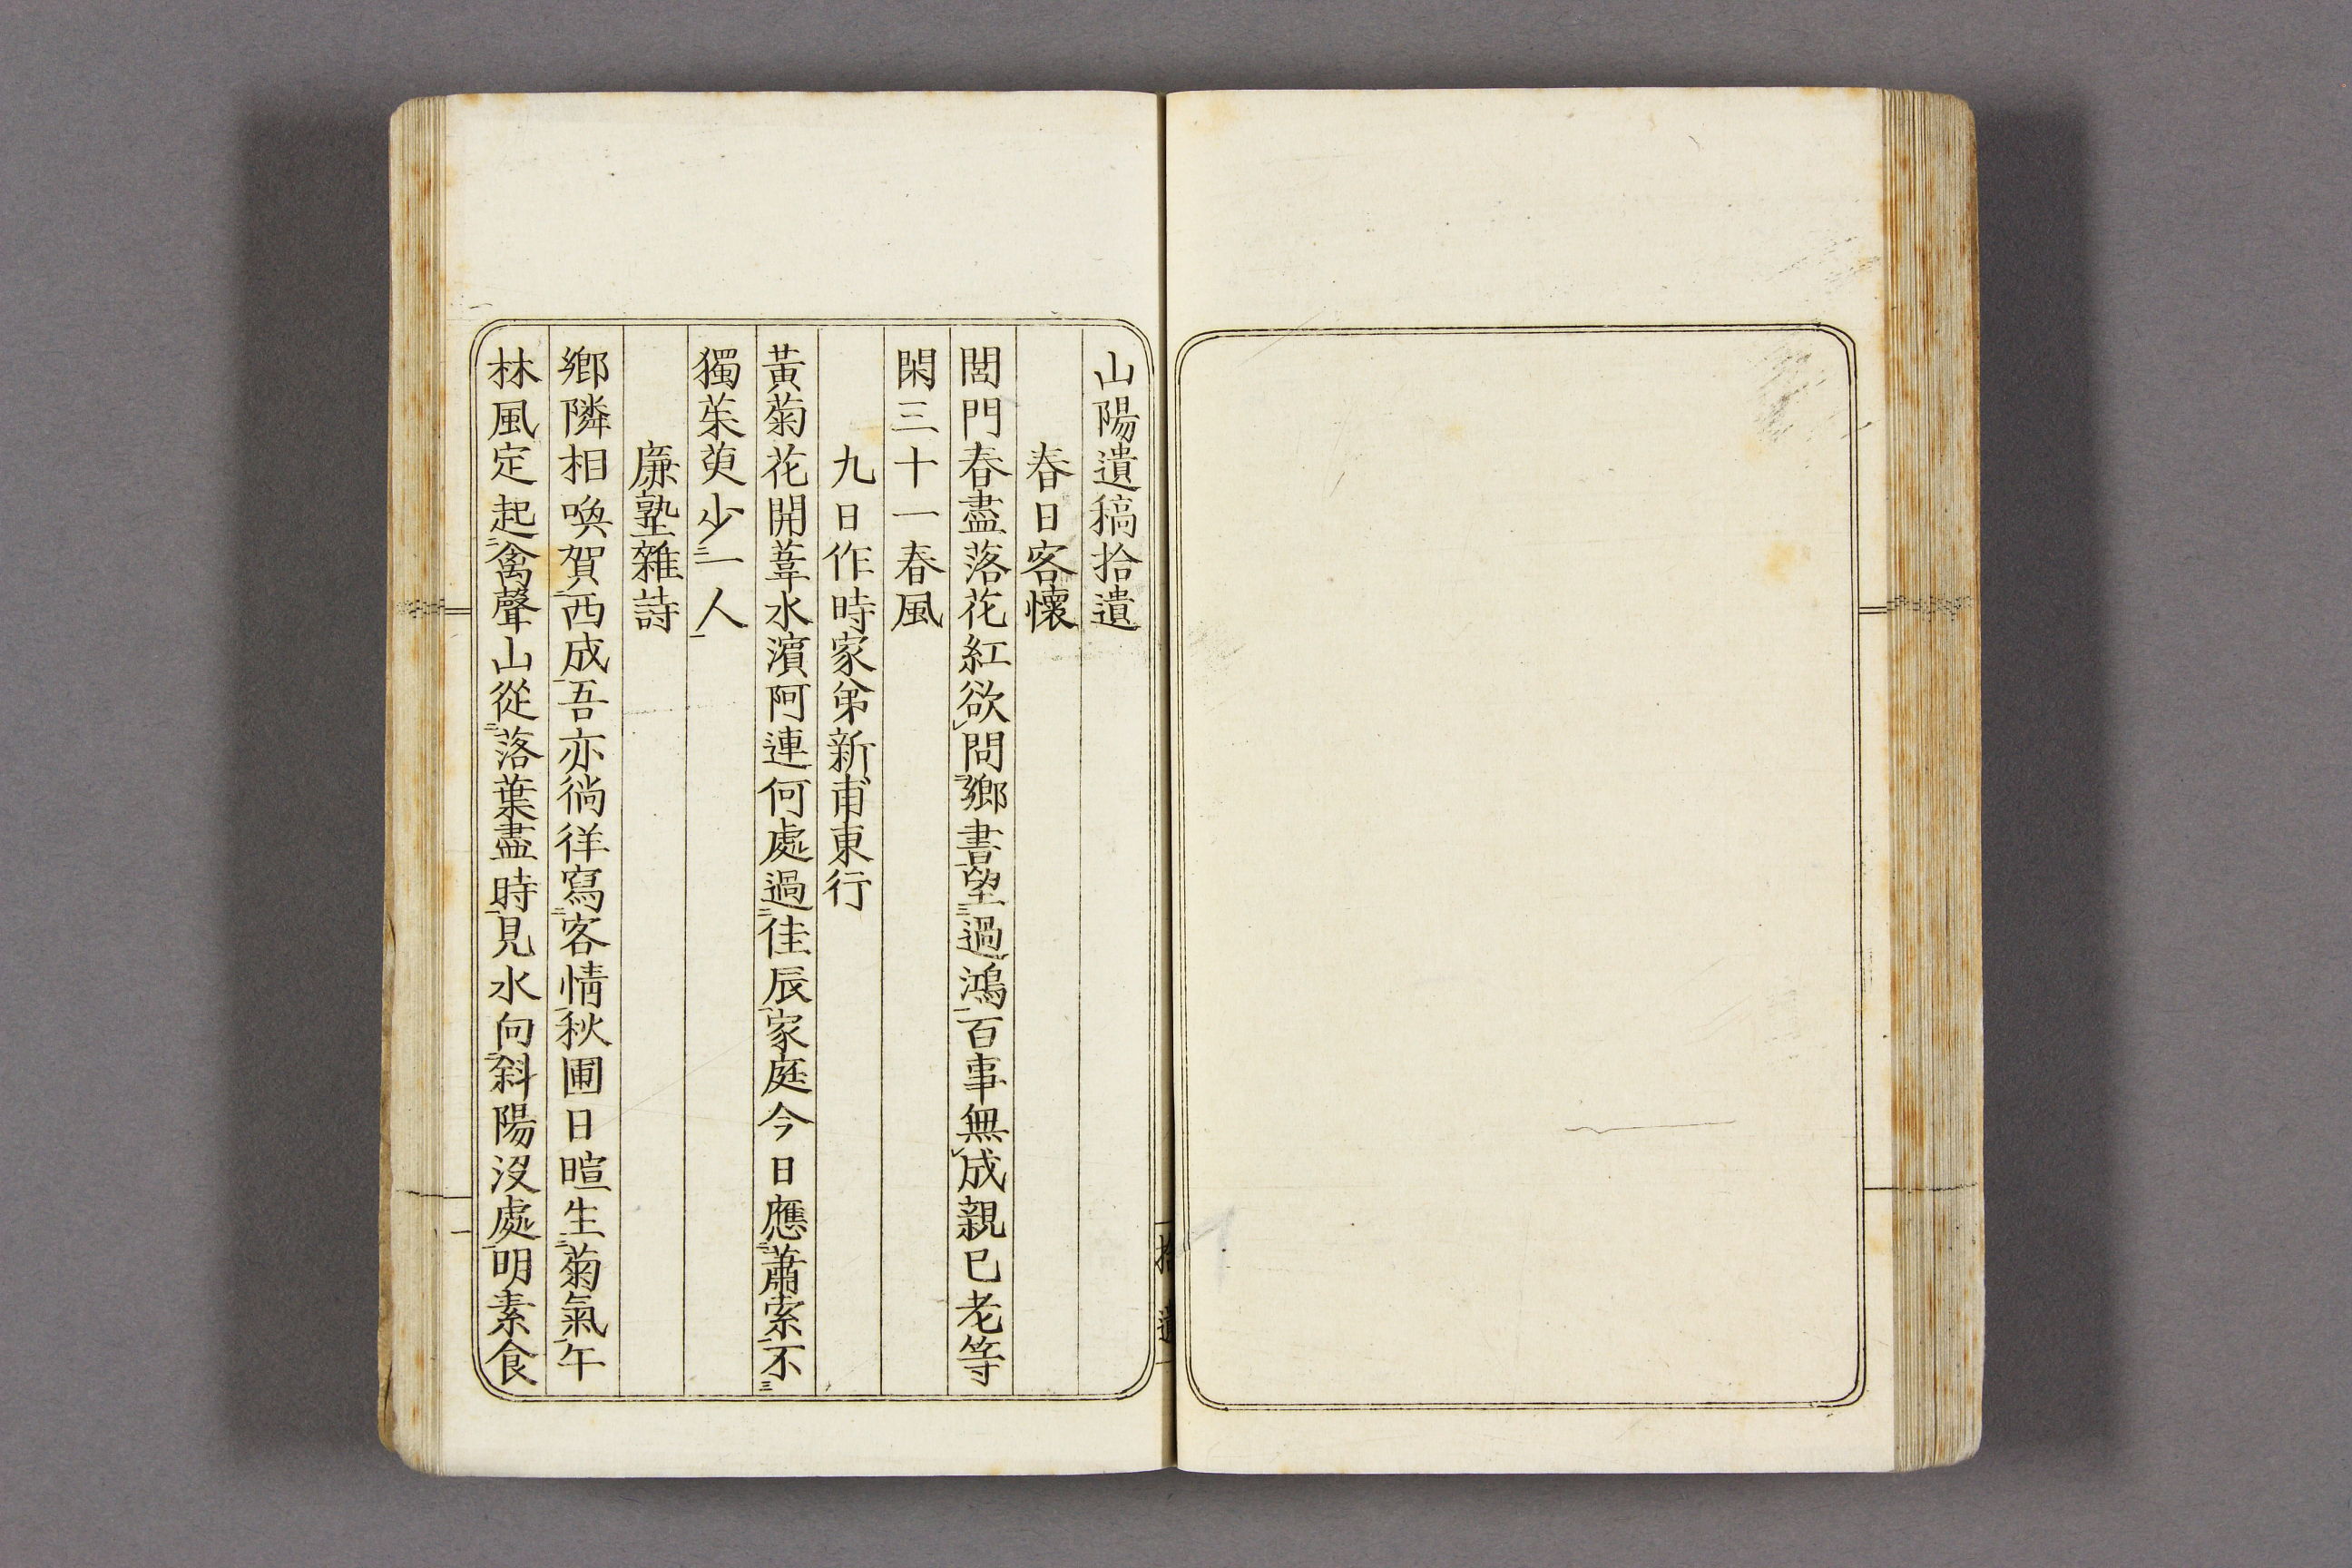 山陽遺稿拾遺
春日客懷
閭門春盡落花紅欲問鄉書望過鴻百事無成親已老等
閑三十一春風
九日作時家弟新甫東行
黃菊花開葦水濱阿連何處過佳辰家庭今日應蕭索不
獨茱萸少一人
廉塾雜詩
鄉隣相喚賀西成吾亦徜徉寫客情秋圃日暄生菊氣午
林風定起禽聲山從落葉盡時見水向斜陽沒處明素食
拾遺
一